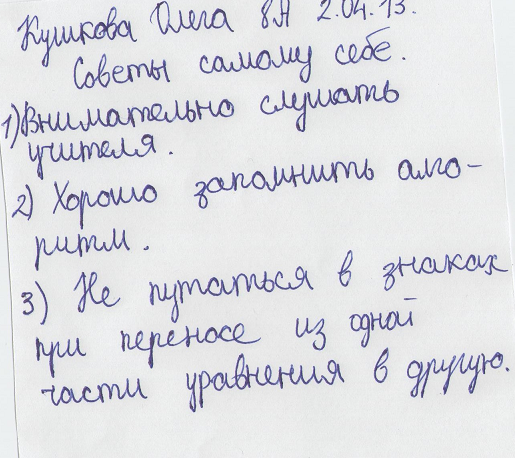 Кушкова Олега 8А 2.04.13.
Советы самому себе.
1) Внимательно слушать
учителя.
2) Хорошо запомнить алго-
ритм.
3) Не путаться в знаках
при переносе из одной
части уравнения в другую.